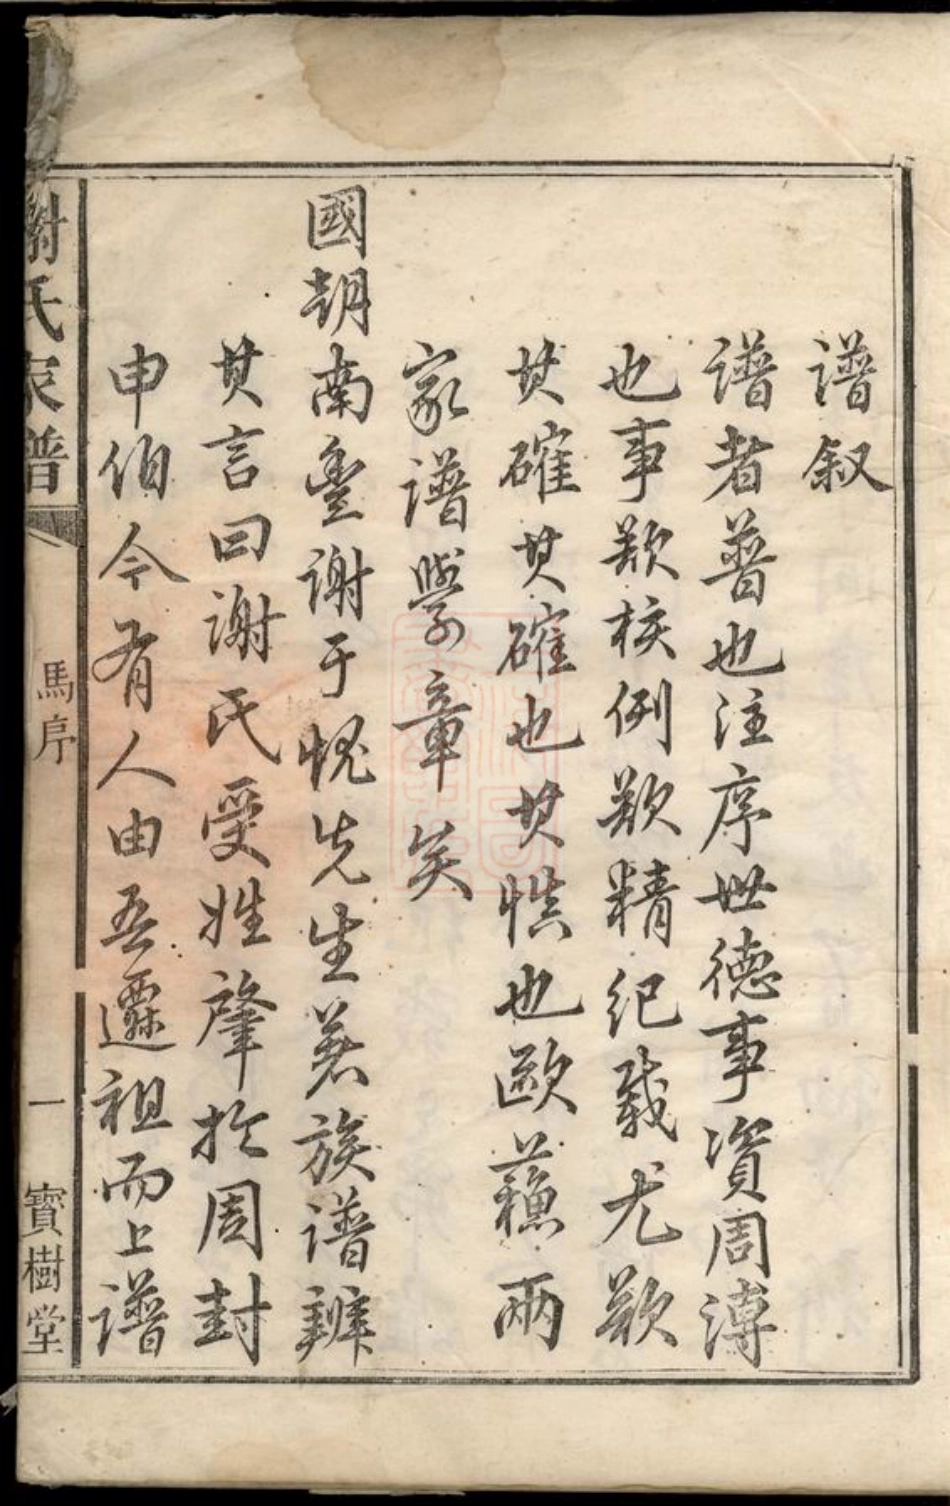 譜叙
譜者普也注序世德事資周溥
也事欵核例欵精紀载尤欵
其確其確也其慎也歐蘓兩
家譜學章矣
國朝南豐谢于愧先生著族譜辨
其言曰谢氏受姓肇扵周封
申伯今有人由吾遷祖而上譜
謝氏家譜
馬序
一
寳樹堂